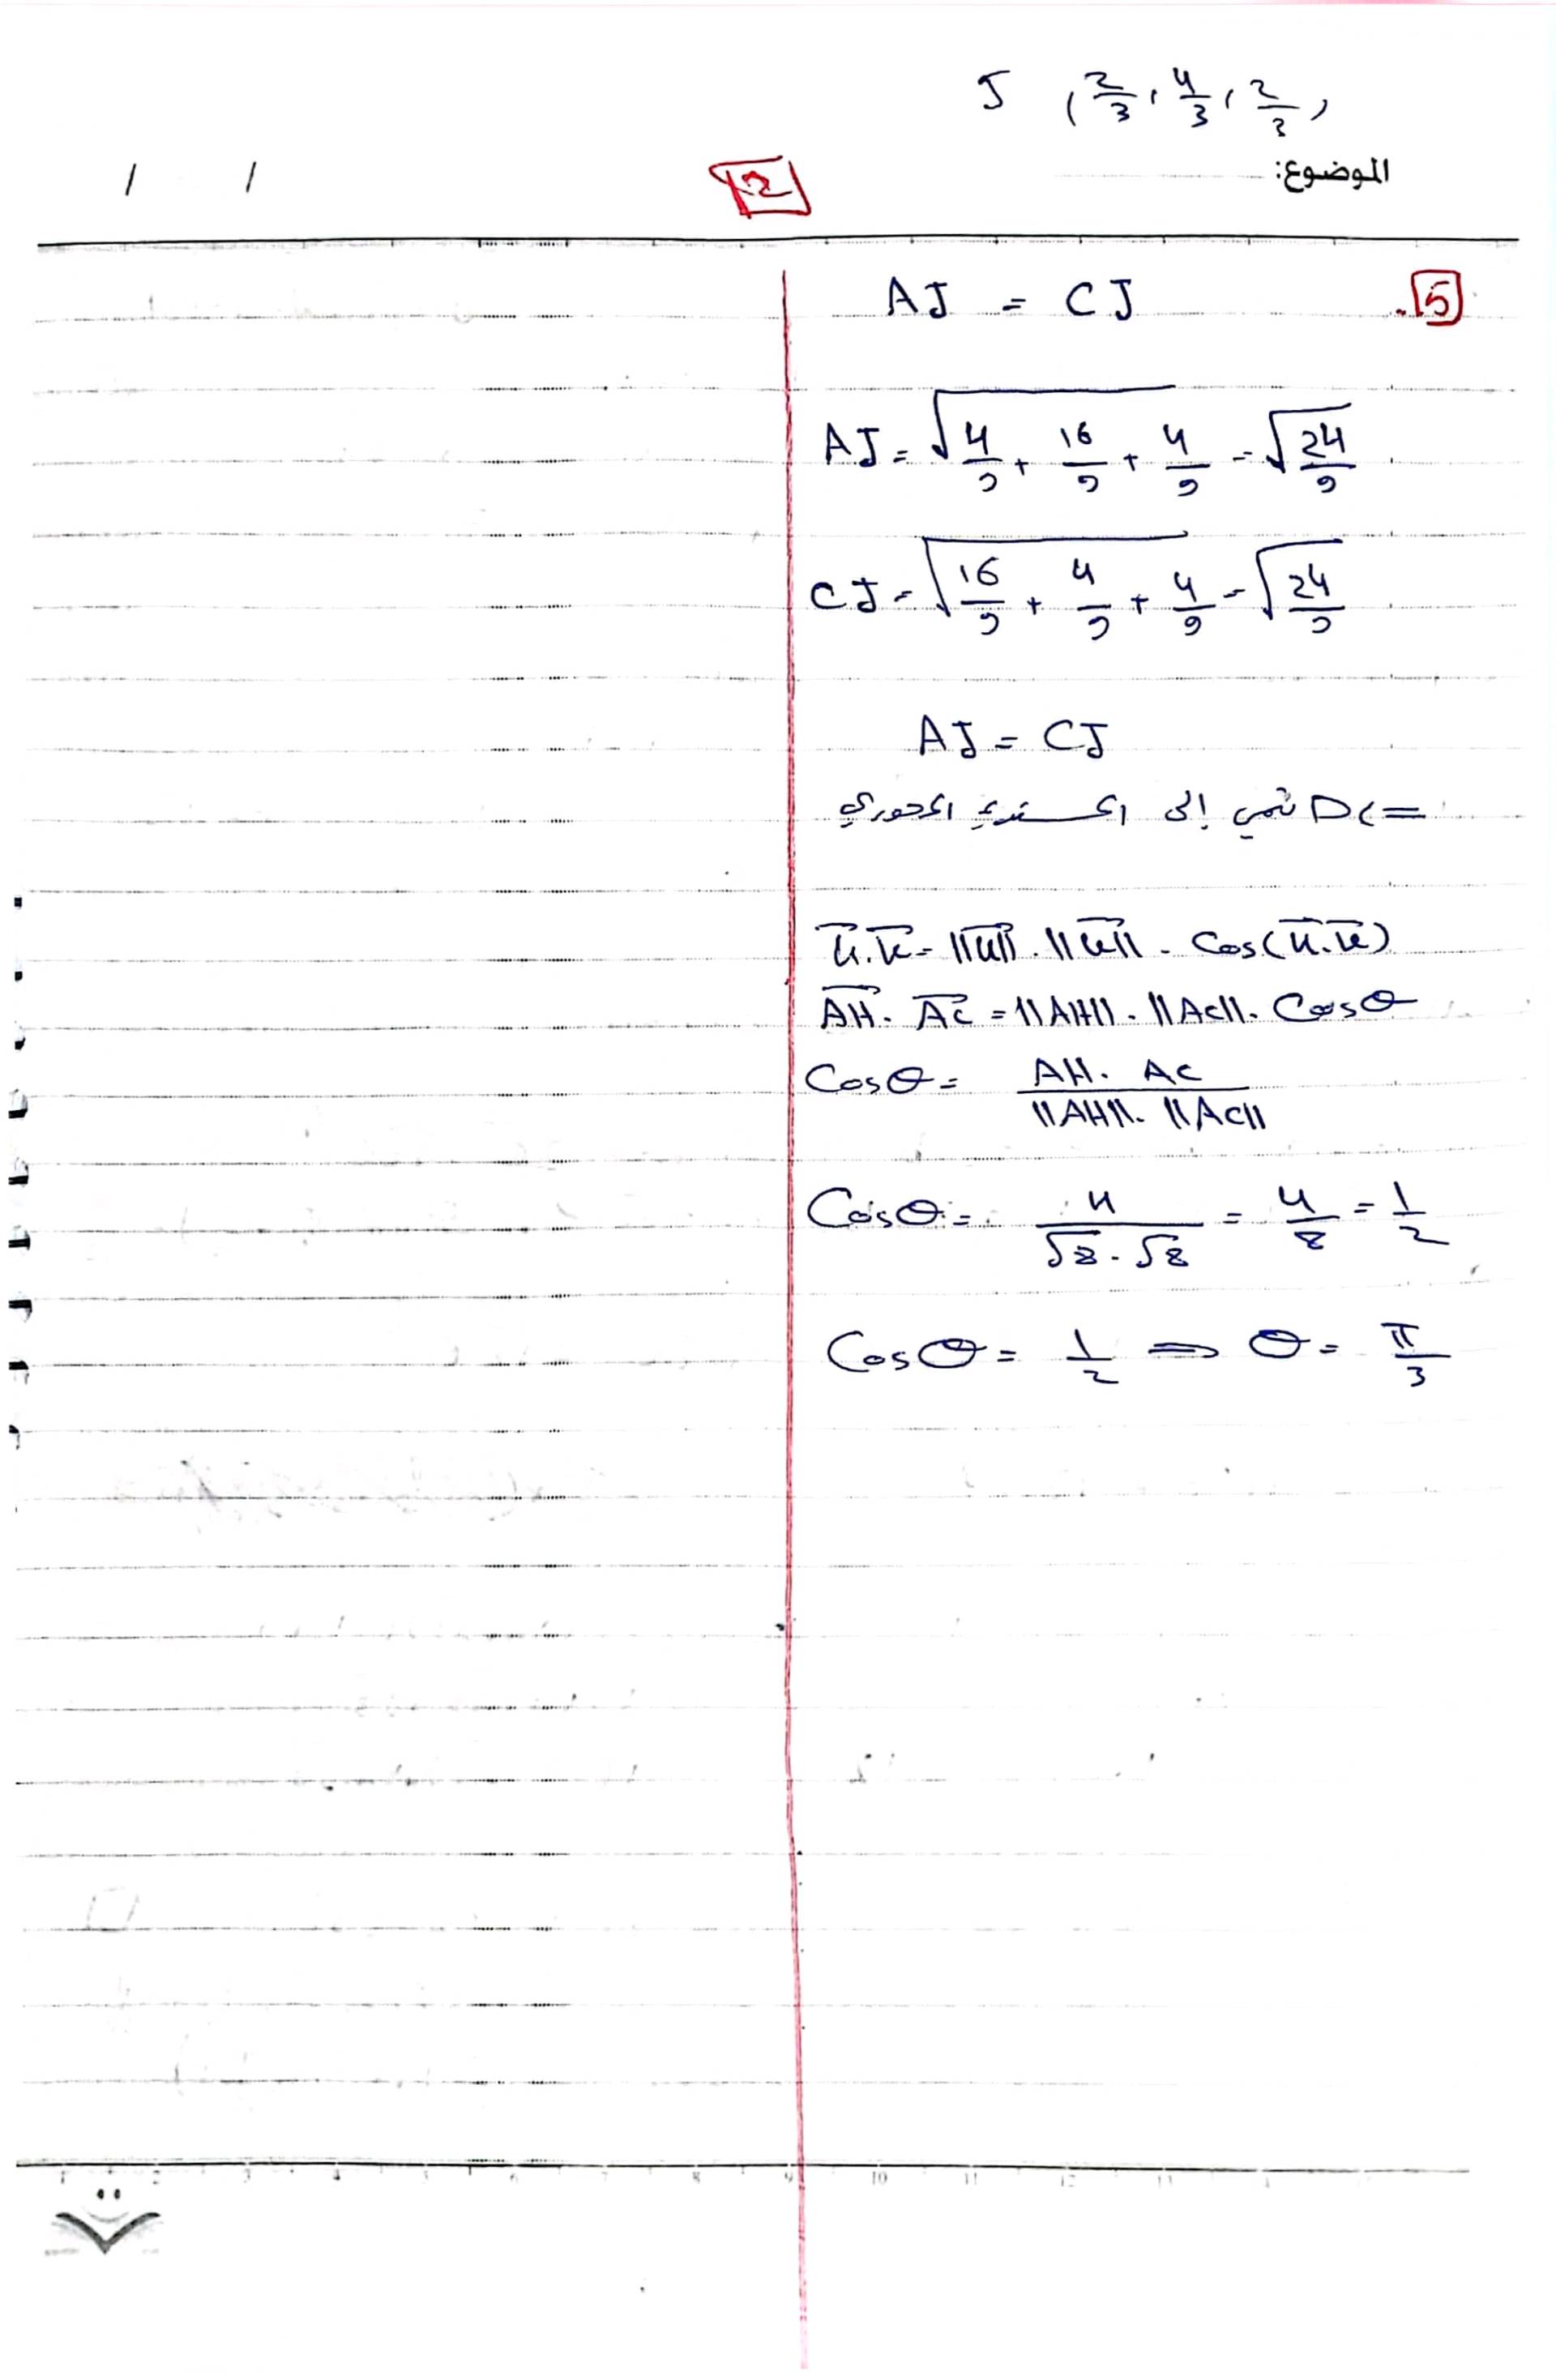 J (2/3, 4/3, 2/3)
الموضوع:
/ /
2
5
AJ = CJ
AJ = √(4/9 + 16/9 + 4/9) = √(24/9)
CJ = √(16/9 + 4/9 + 4/9) = √(24/9)
AJ = CJ
إلى المستوي المحوري
u⃗.v⃗ = ||u⃗|| . ||v⃗|| . Cos(u⃗.v⃗)
AH⃗ . AC⃗ = ||AH|| . ||AC|| . Cosθ
Cosθ = AH . AC / ||AH|| . ||AC||
Cosθ = 4 / √8 . √8 = 4/8 = 1/2
Cosθ = 1/2 ⇒ θ = π/3